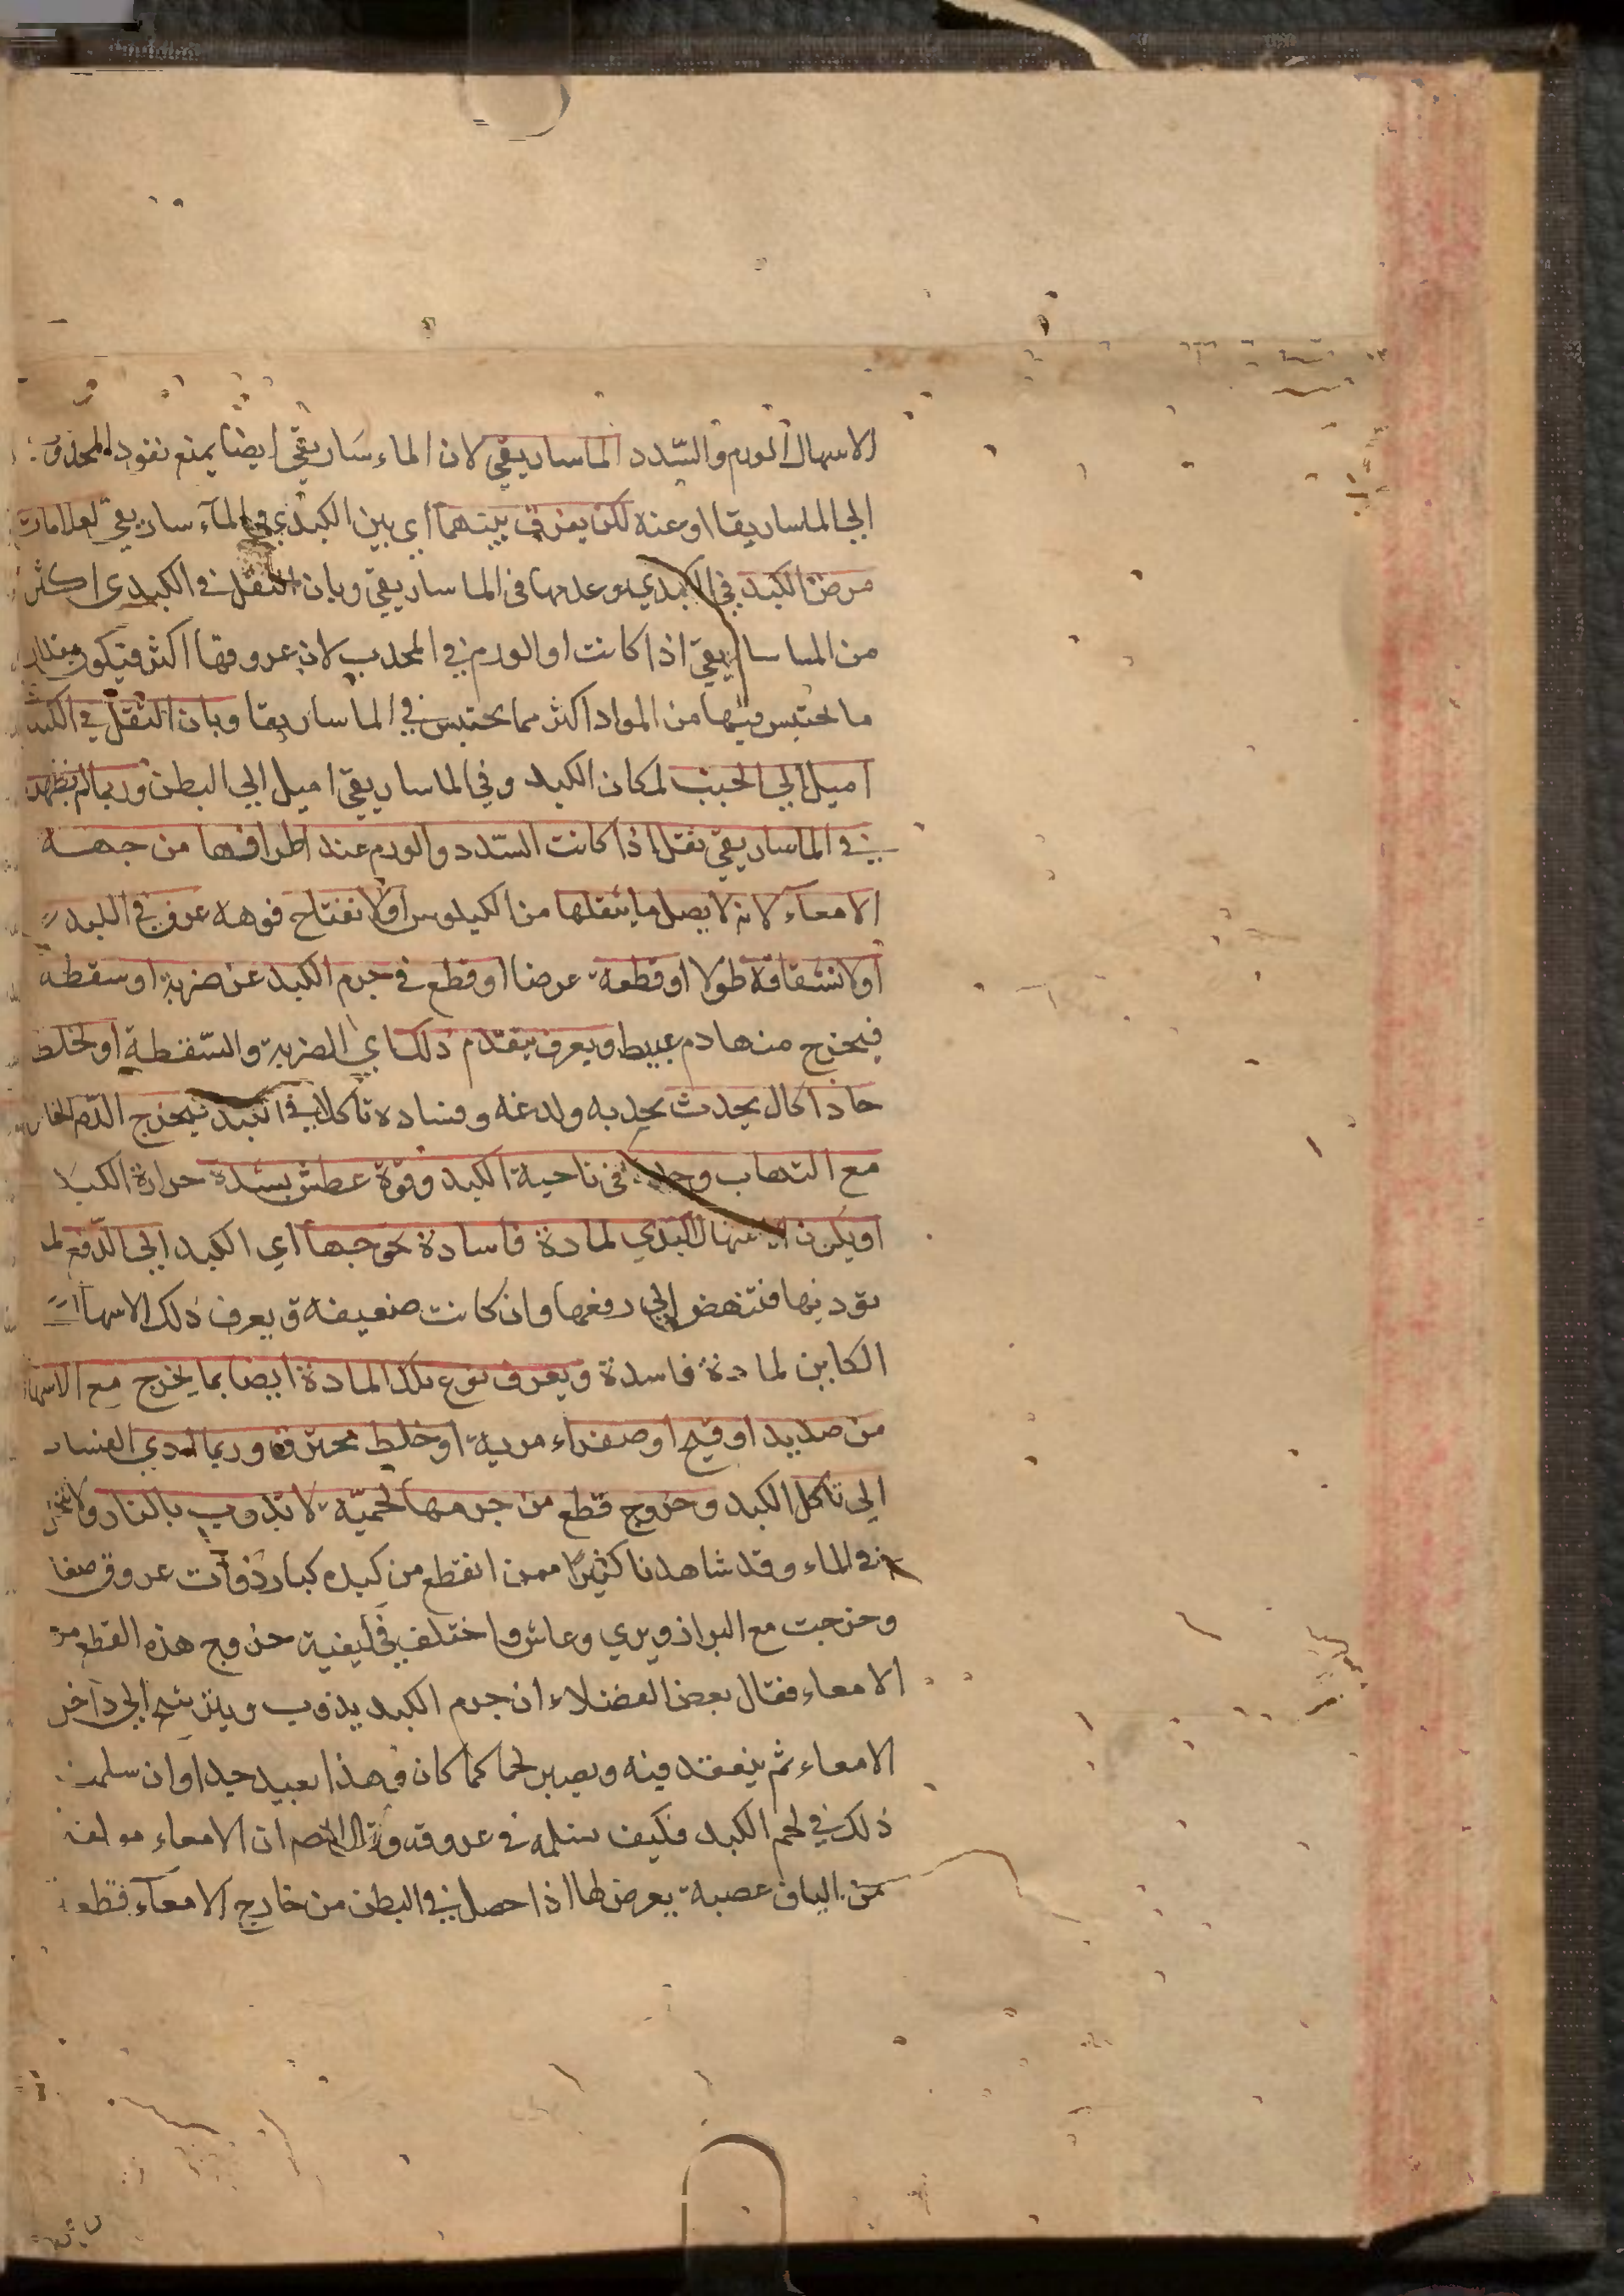 الاسهال الورم والسّدد الماساريقي لان الماء ساريقي ايضا يمنع نفود المجذوب
الي الماساريقا اوعنه لكن يفرق بينهما اي بين الكبدي والمآء ساريقي لعلامات
مرض الكبد في الكبدي وعدمها في الماساريقي وبان الثقل في الكبدي اكثر
من الماساريقي اذا كانت او الورم في المحدب لان عروقها اكثر فيكون مقدار
ما يحتبس فيها من المواد اكثر مما يحتبس في الماساريقا وبان الثقل في الكبد
اميل الي الجنب لمكان الكبد وفي الماساريقي اميل الي البطن وربما لم يظهر
في الماساريقي ثقل اذا كانت السّدد والورم عند اطرافها من جهة
الامعاء لانه لا يصل ما يثقلها من الكيلوس اولا نفتاح فوهة عرق في الكبد
اولا نشقاقه طولا او قطعه عرضا او قطع في جرم الكبد عن ضربة او سقطه
فيخرج منها دم عبيط ويعرف بتقدم ذلك اي الضربة والسّقطة او لخلط
حاد اكال يحدث بحدبه ولدغه وفساده تاكلا في الكبد فيخرج الدّم
مع التهاب في ناحية الكبد وقوة عطش بشدة حرارة الكبد
او يكون الاسهال الكبدي لمادة فاسادة تحوجها اي الكبد الي الدّفع لما
يؤديها فتنهض الي دفعها وان كانت ضعيفه ويعرف ذلك الاسهال
الكاين لمادة فاسدة ويعرف نوع تلك المادة ايضا بما يخرج مع الاسهال
من صديد او قيح او صفراء مرية او خلط محترق وربما ادي الفساد
الي تاكل الكبد وخروج قطع من جرمها لحميّة لا تذوب بالنار ولا تنحل
في الماء وقد شاهدنا كثيرا ممن انقطع من كبده كبار ذوات عروق صغار
وخرجت مع البراز وبري وعاش واختلف في كيفية خروج هذه القطع من
الامعاء فقال بعض الفضلاء ان جرم الكبد يذوب ويترشح الي داخل
الامعاء ثم ينعقد فيه ويصير لحما كما كان وهذا بعيد جدا وان سلمنا
ذلك في لحم الكبد فكيف نسلمه في عروقه وقال ان الامعاء مولفة
من الياف عصبية يعرض لها اذا حصل في البطن من خارج الامعآء قطعة